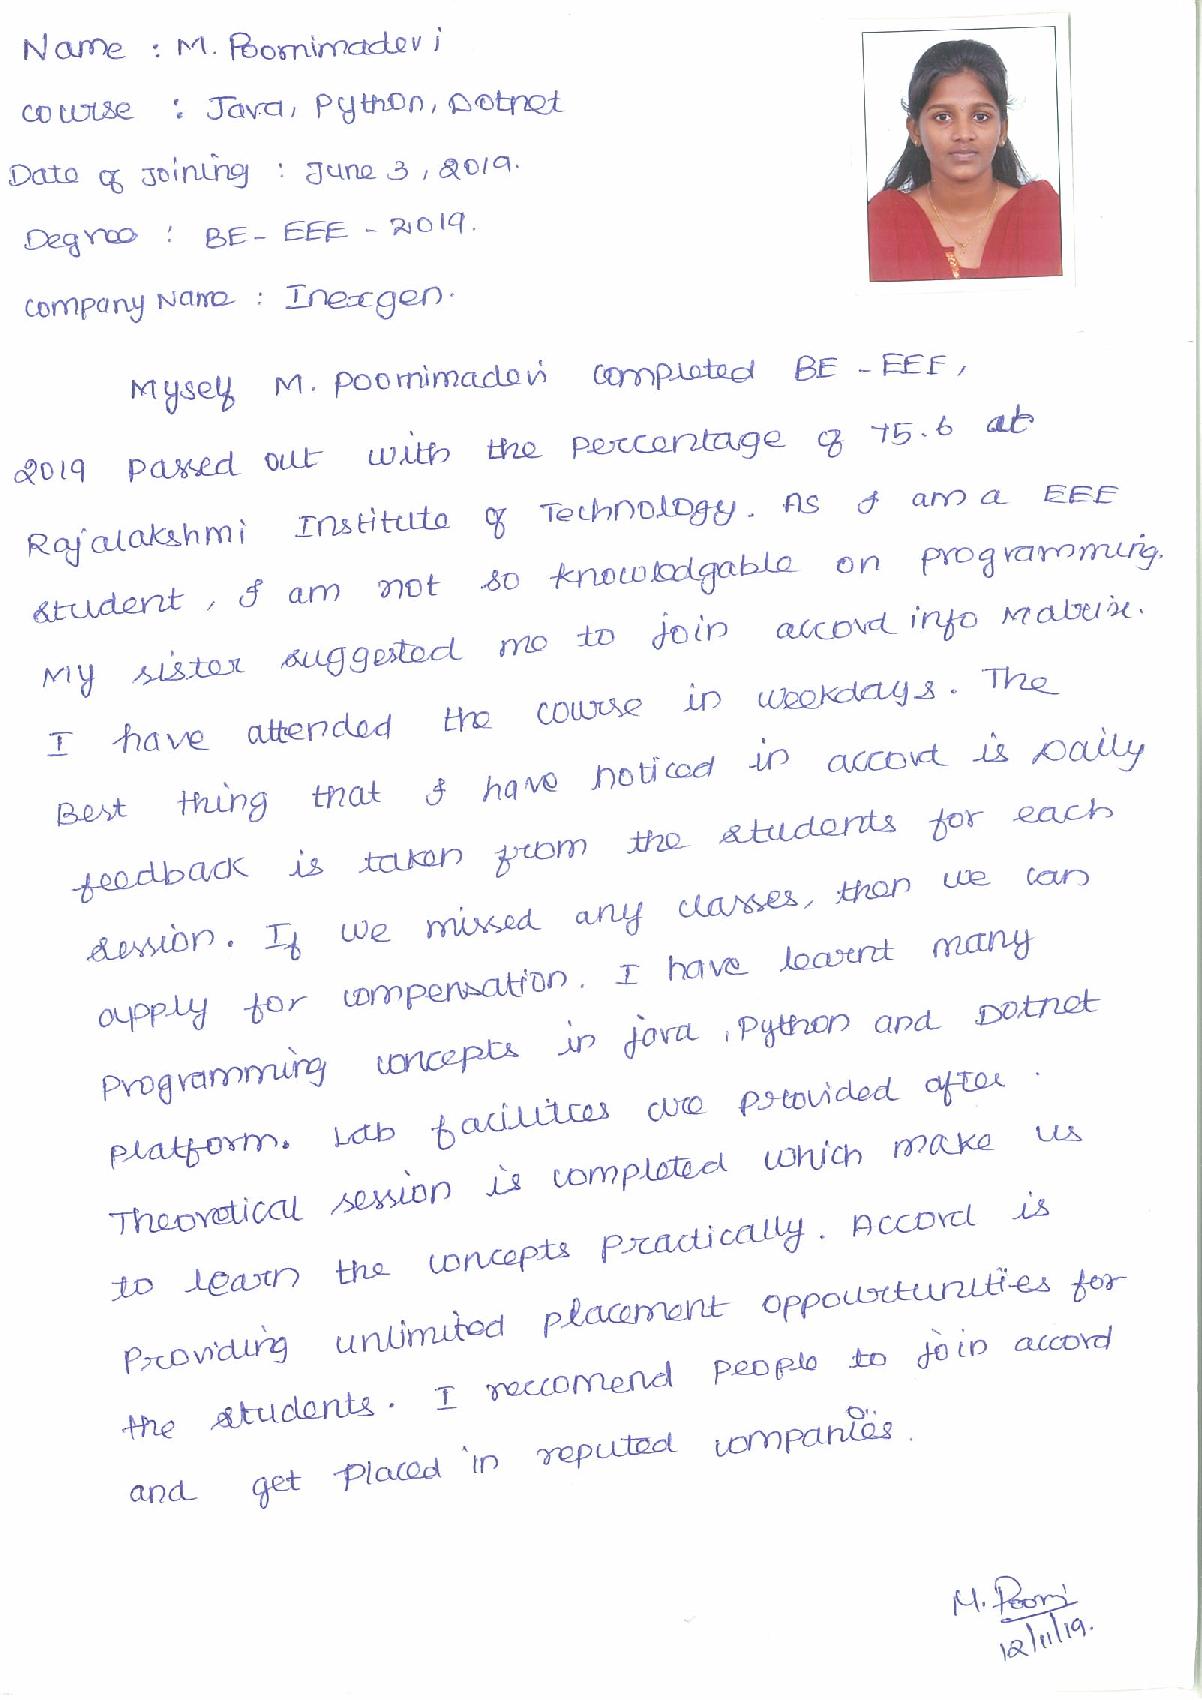 Name : M. Poornimadevi
course : Java, Python, Dotnet
Date of Joining : June 3, 2019.
Degree : BE - EEE - 2019.
Company Name : Inexgen.
Myself M. Poornimadevi completed BE - EEE,
2019 passed out with the percentage of 75.6 at
Rajalakshmi Institute of Technology. As I am a EEE
student, I am not so knowledgable on programming.
My sister suggested me to join accord info Matrix.
I have attended the course in weekdays. The
Best thing that I have noticed in accord is Daily
feedback is taken from the students for each
session. If we missed any classes, then we can
apply for compensation. I have learnt many
Programming concepts in java, Python and Dotnet
Platform. Lab facilities are provided after.
Theoretical session is completed which make us
to learn the concepts practically. Accord is
Providing unlimited placement oppourtunities for
the students. I reccomend people to join accord
and get placed in reputed companies.
M. Poorni
12/11/19.